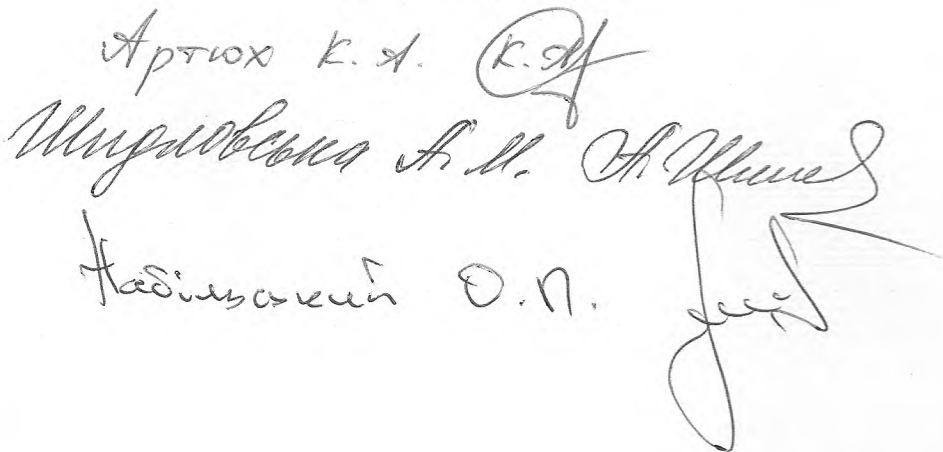 Артюх К. А. К.А
Шидловська А. М. А. Шидл
Набільський О. П.